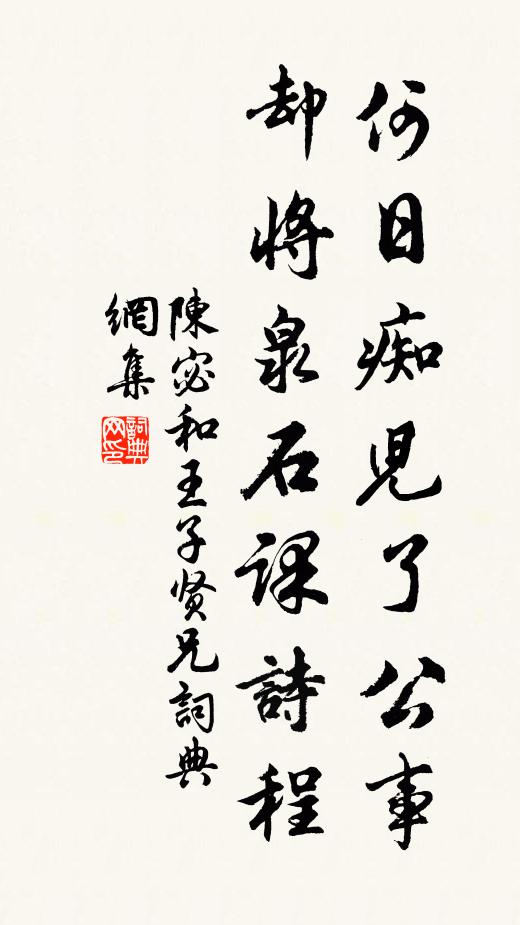 何日痴児了公事
却将泉石課詩程
陳宓和王子贤兄詞典
網集
詞典
网印